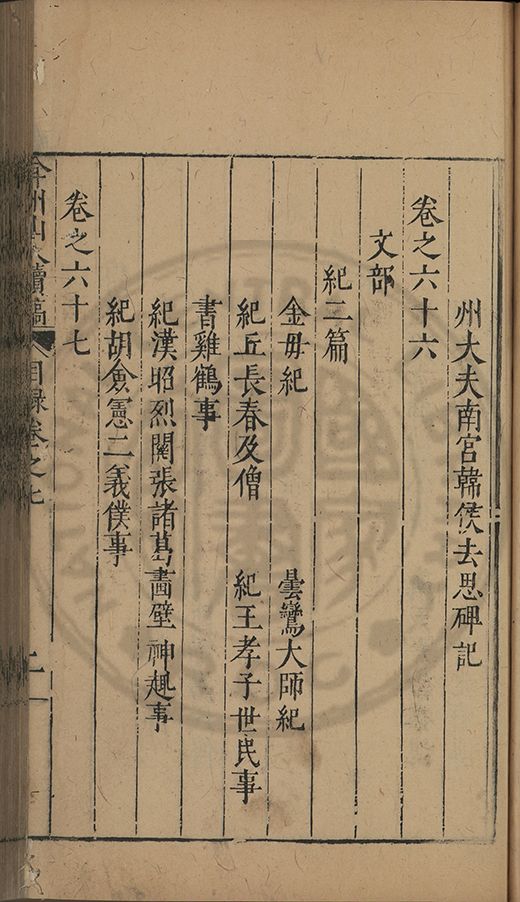 州大夫南宮韓侯去思碑記
卷之六十六
文部
紀二篇
金母紀 曇鸞大師紀
紀丘長春及僧 紀王孝子世民事
書雞鶴事
紀漢昭烈關張諸葛畵壁神趣事
紀胡僉憲二義僕事
卷之六十七
弇州山人續稿 目録卷之七